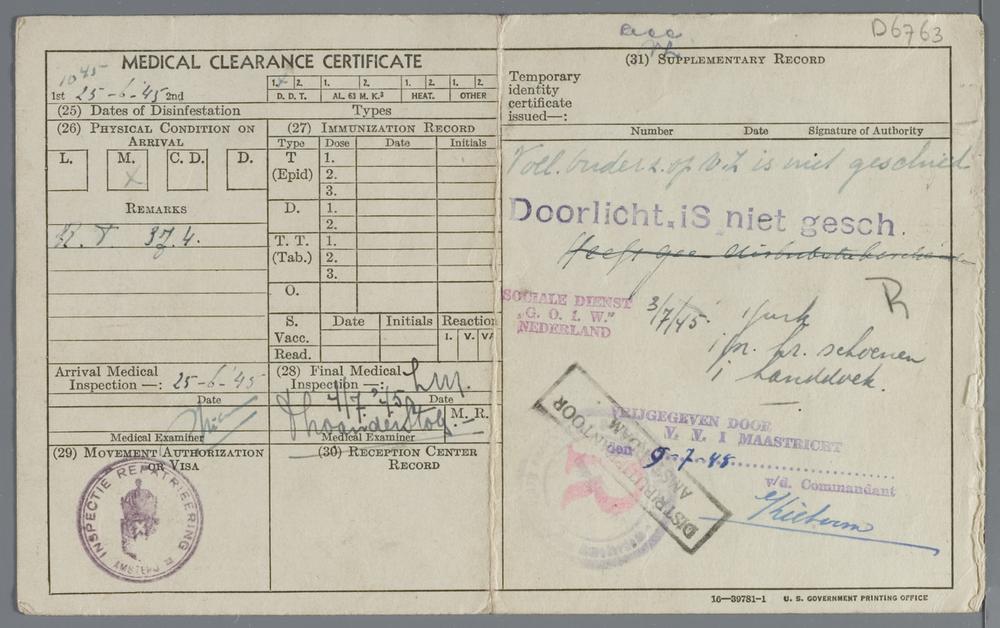 D6763
MEDICAL CLEARANCE CERTIFICATE
1045
1st 25-6-'45 2nd
1. X 2. 1. 2. 1. 2. 1. 2.
D. D. T. AL. 63 M. K.³ HEAT. OTHER
(25) Dates of Disinfestation Types
(26) PHYSICAL CONDITION ON
ARRIVAL
L. M. C. D. D.
X
REMARKS
37.4.
(27) IMMUNIZATION RECORD
Type Dose Date Initials
T 1.
(Epid) 2.
3.
D. 1.
2.
T. T. 1.
(Tab.) 2.
3.
O.
S. Date Initials Reaction
Vacc. I. V. VA
Read.
Arrival Medical
Inspection —: 25-6-'45
Date
Medical Examiner
(28) Final Medical
Inspection —: 4/7 '45
Date
M. R.
Medical Examiner
(29) MOVEMENT AUTHORIZATION
OR VISA
INSPECTIE REPATRIEERING
(30) RECEPTION CENTER
RECORD
(31) SUPPLEMENTARY RECORD
Temporary
identity
certificate
issued—:
Number Date Signature of Authority
Voll. onderz. op V.Z is niet geschied
Doorlicht. iS niet gesch.
R
SOCIALE DIENST
„G. O. I. W."
NEDERLAND
3/7/45. 1 jurk
1 pr. br. schoenen
1 handdoek.
VRIJGEGEVEN DOOR
V. V. I MAASTRICHT
den 9-7-45
v/d. Commandant
DISTRIBUTIEKANTOOR
AMSTERDAM
R
16—39781-1 U. S. GOVERNMENT PRINTING OFFICE